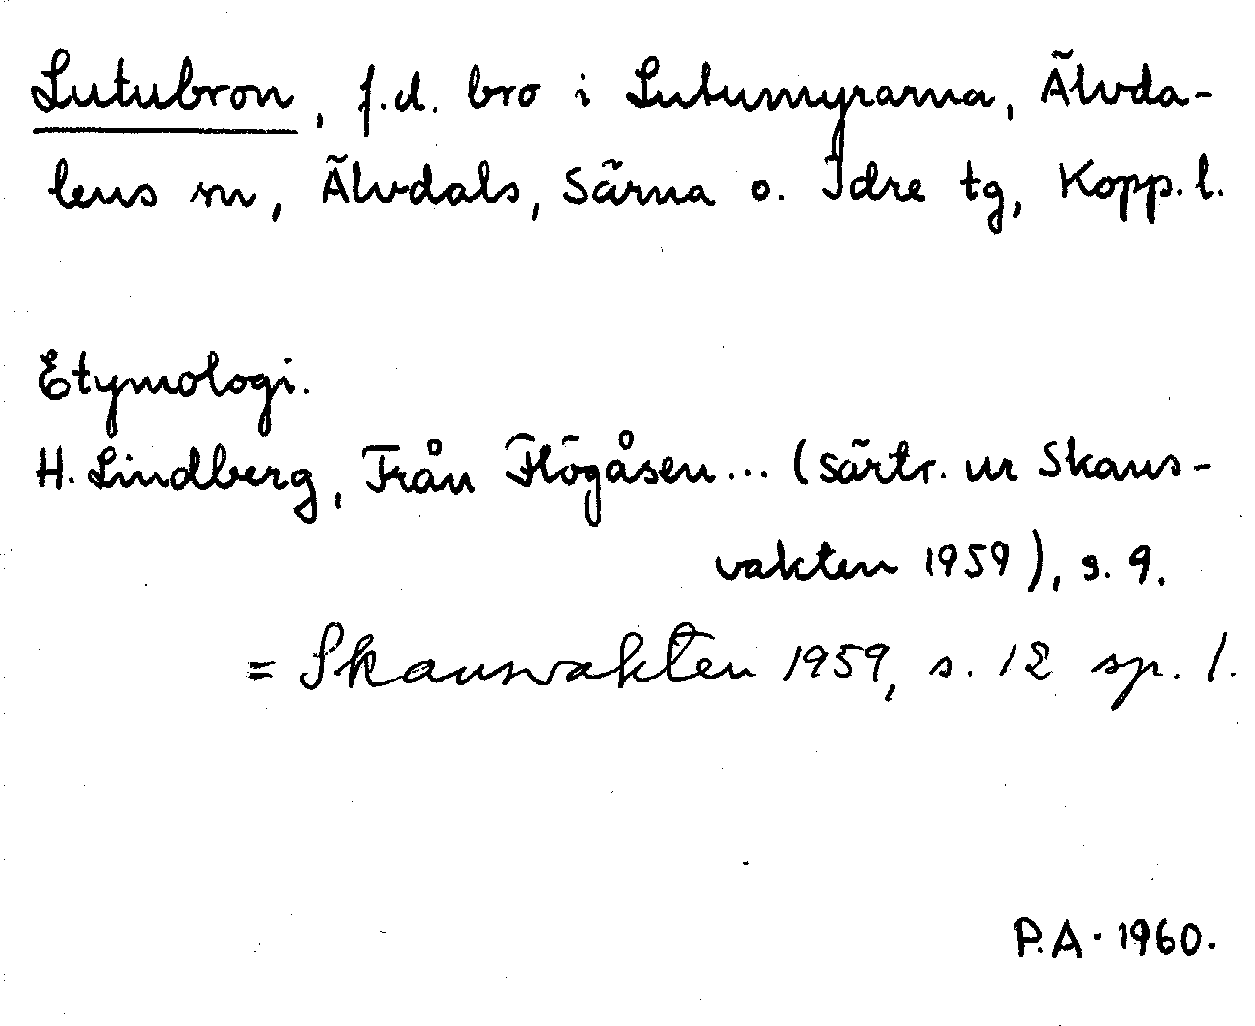 Lutubron, f.d. bro i Lutumyrarna, Älvda-
lens sn, Älvdals, Särna o. Idre tg, Kopp. l.
Etymologi.
H. Lindberg, Från Flögåsen... (särtr. ur Skans-
vakten 1959), s. 9.
= Skansvakten 1959, s. 12 sp. 1.
P.A. 1960.